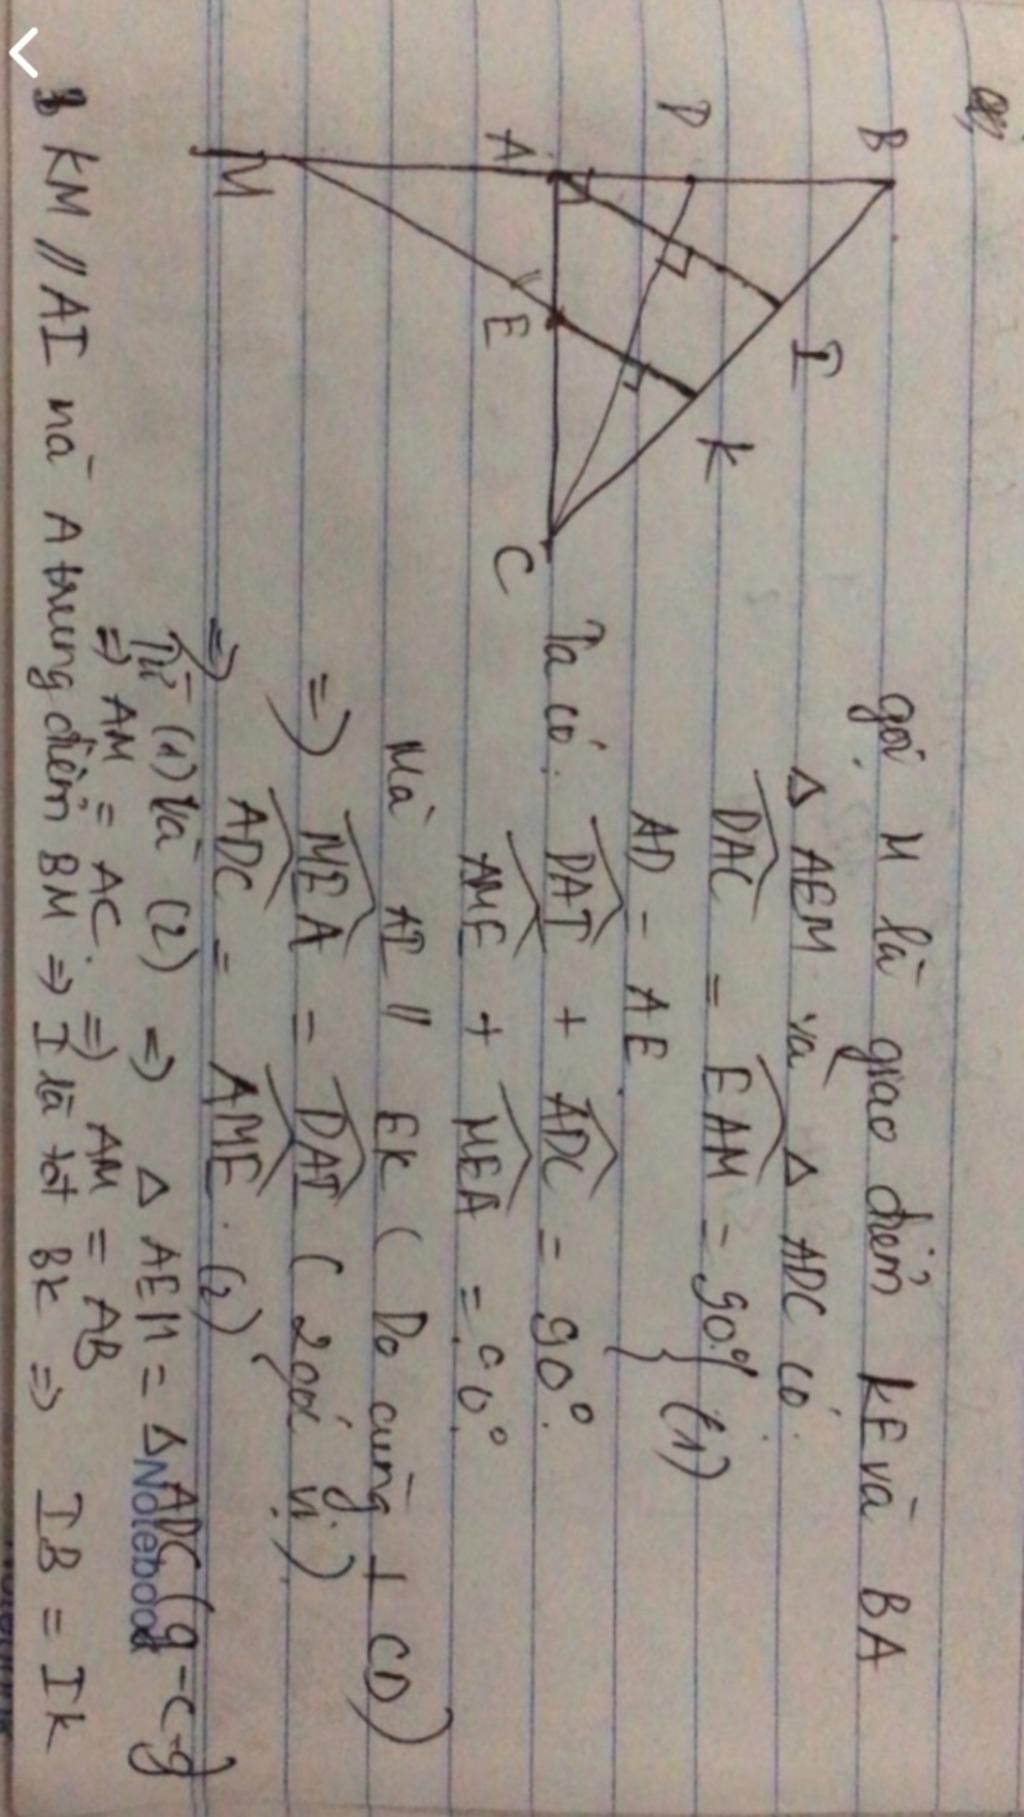 a)
B
D
I
A
K
E
C
M
gọi M là giao điểm KE và BA
Δ AEM và Δ ADC có:
DAC = EAM = 90°
AD = AE
} (1)
Ta có: DAI + ADC = 90°
AME + MEA = 90°
Mà AI // EK (Do cùng ⊥ CD)
=> MEA = DAI (2 góc vị)
=> ADC = AME. (2)
Từ (1) và (2) => Δ AEM = Δ ADC (g-c-g)
=> AM = AC. => AM = AB
KM // AI mà A trung điểm BM => I là tđ BK => IB = IK
Notebook